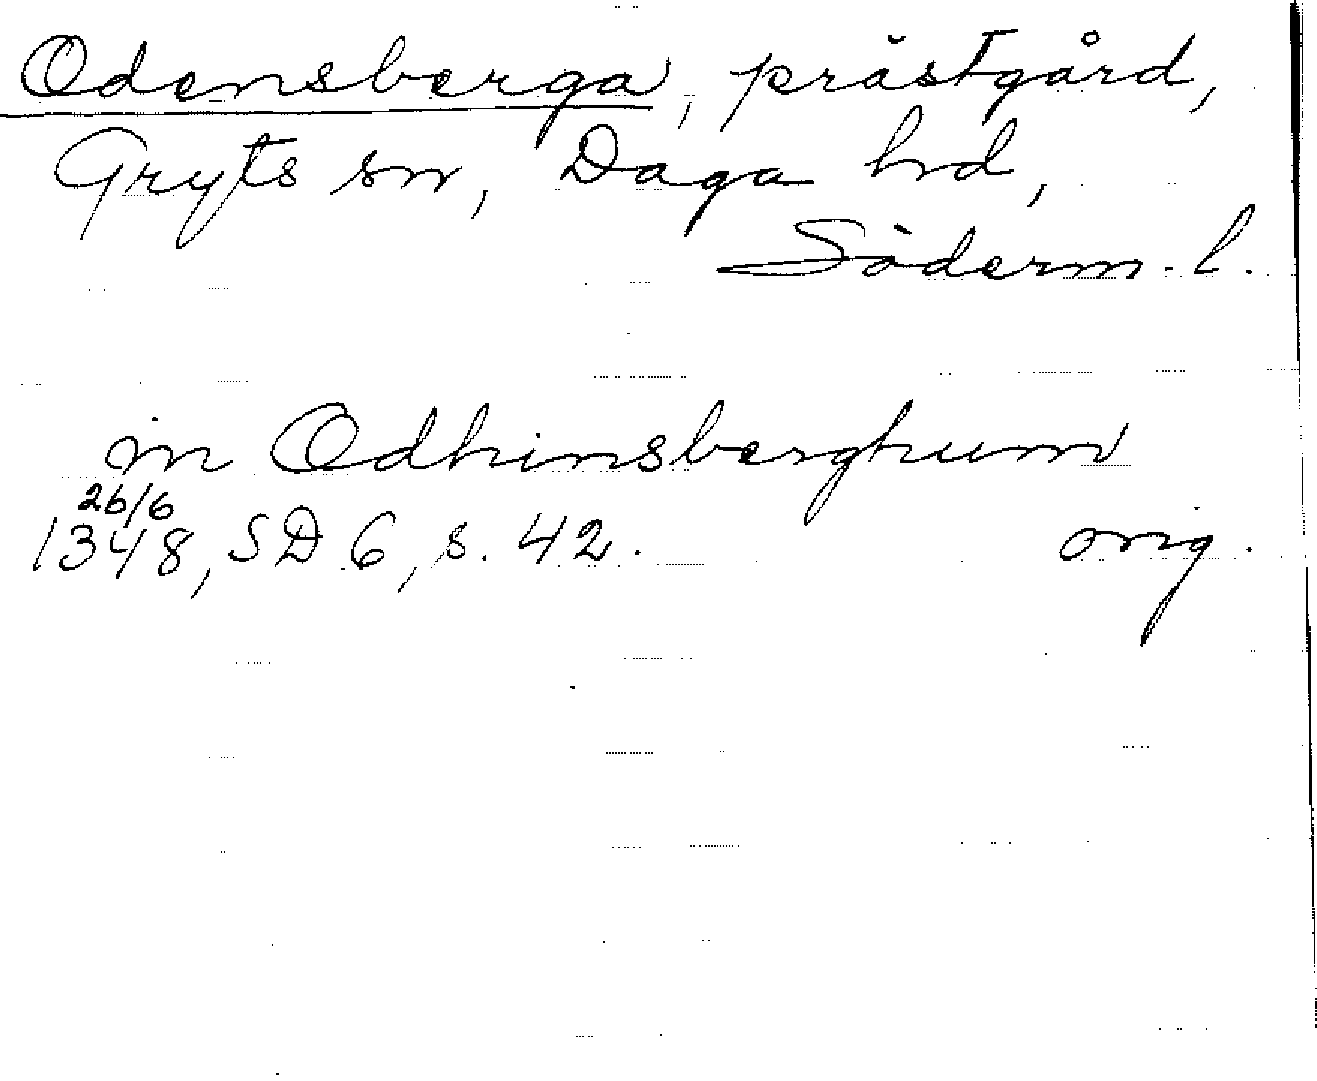 Odensberga, prästgård,
Gryts sn, Daga hd,
Söderm. l.
in Odhinsberghum
26/6
1348, SD 6, s. 42. orig.